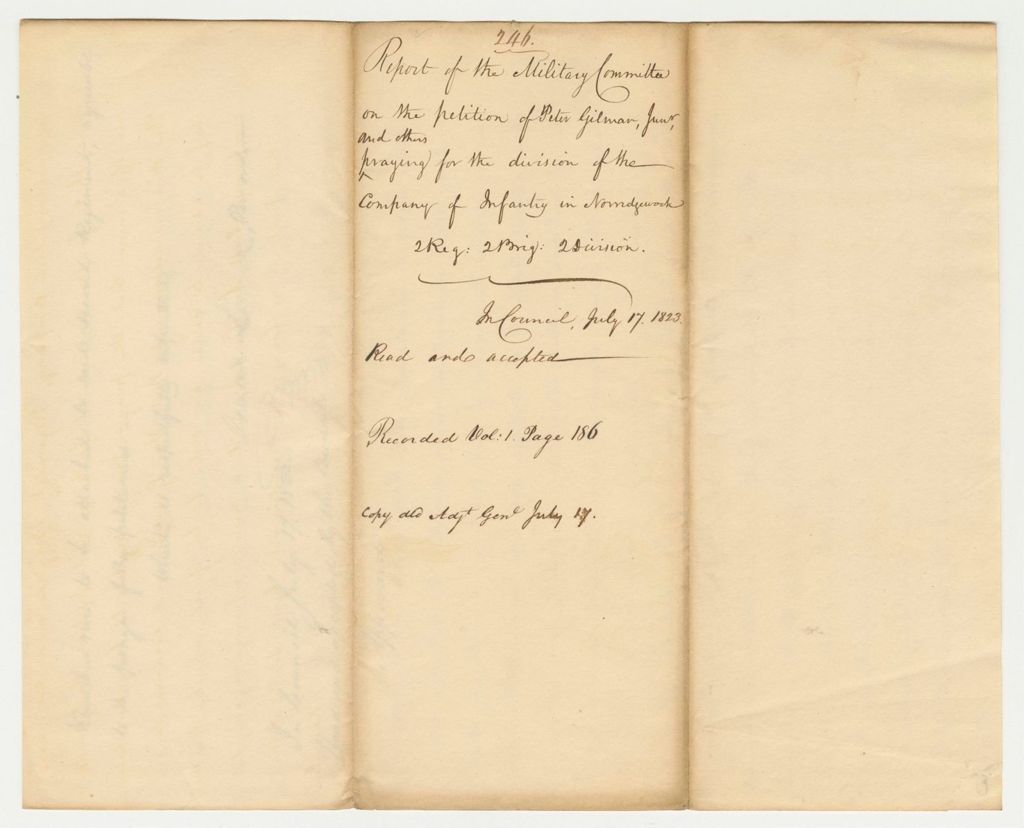 246.
Report of the Military Committee
on the petition of Peter Gilman, Junr,
and others
praying for the division of the
Company of Infantry in Norridgewock
2 Reg: 2 Brig: 2 Division.
In Council, July 17. 1823.
Read and accepted
Recorded Vol: 1. Page 186
Copy dld Adjt Genl July 17.